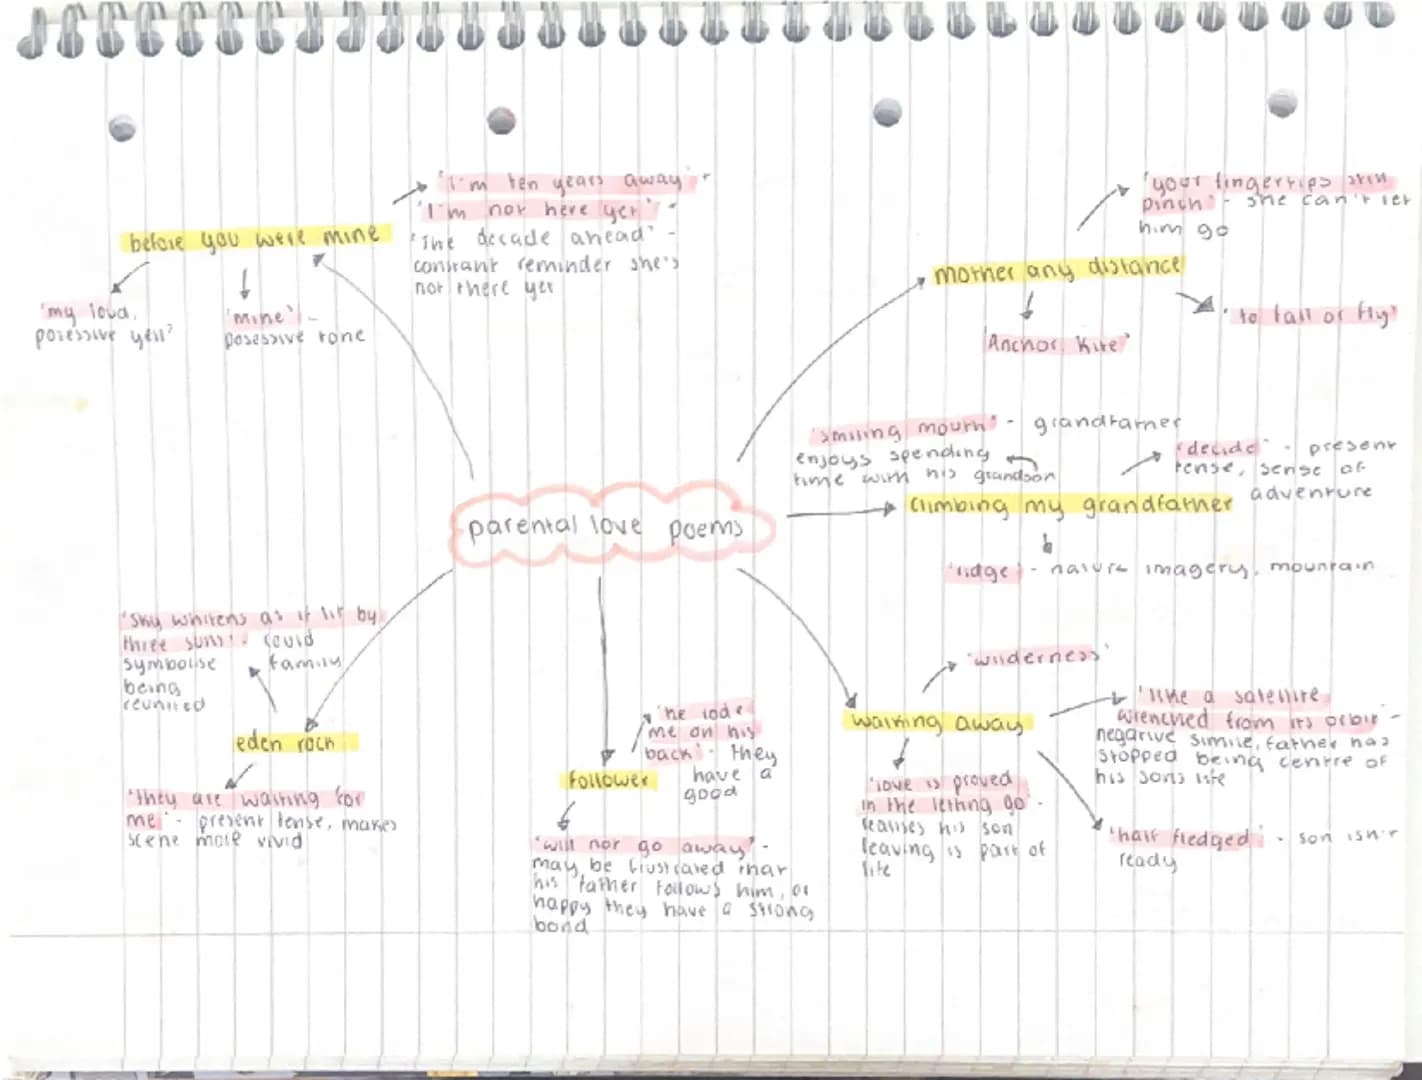 parental love poems
before you were mine
'I'm ten years away'
'I'm not here yet' -
'the decade ahead' -
constant reminder she's
not there yet
'my loud,
posessive yell'
'mine' -
posessive tone
mother any distance
'your fingertips still
pinch' - she can't let
him go
'Anchor. Kite'
'to fall or fly'
climbing my grandfather
'smiling mouth' - grandfather
enjoys spending
time with his grandson
'decide' - present
tense, sense of
adventure
'ridge' - nature imagery, mountain
walking away
'wilderness'
'like a satellite
wrenched from its orbit' -
negative simile, father has
stopped being centre of
his sons life
'love is proved
in the letting go' -
realises his son
leaving is part of
life
'half fledged' - son isn't
ready
follower
'he rode
me on his
back' - they
have a
good
'will not go away' -
may be frustrated that
his father follows him, or
happy they have a strong
bond
eden rock
'sky whitens as if lit by
three suns' - could
symbolise family
being
reunited
'they are waiting for
me' - present tense, makes
scene more vivid